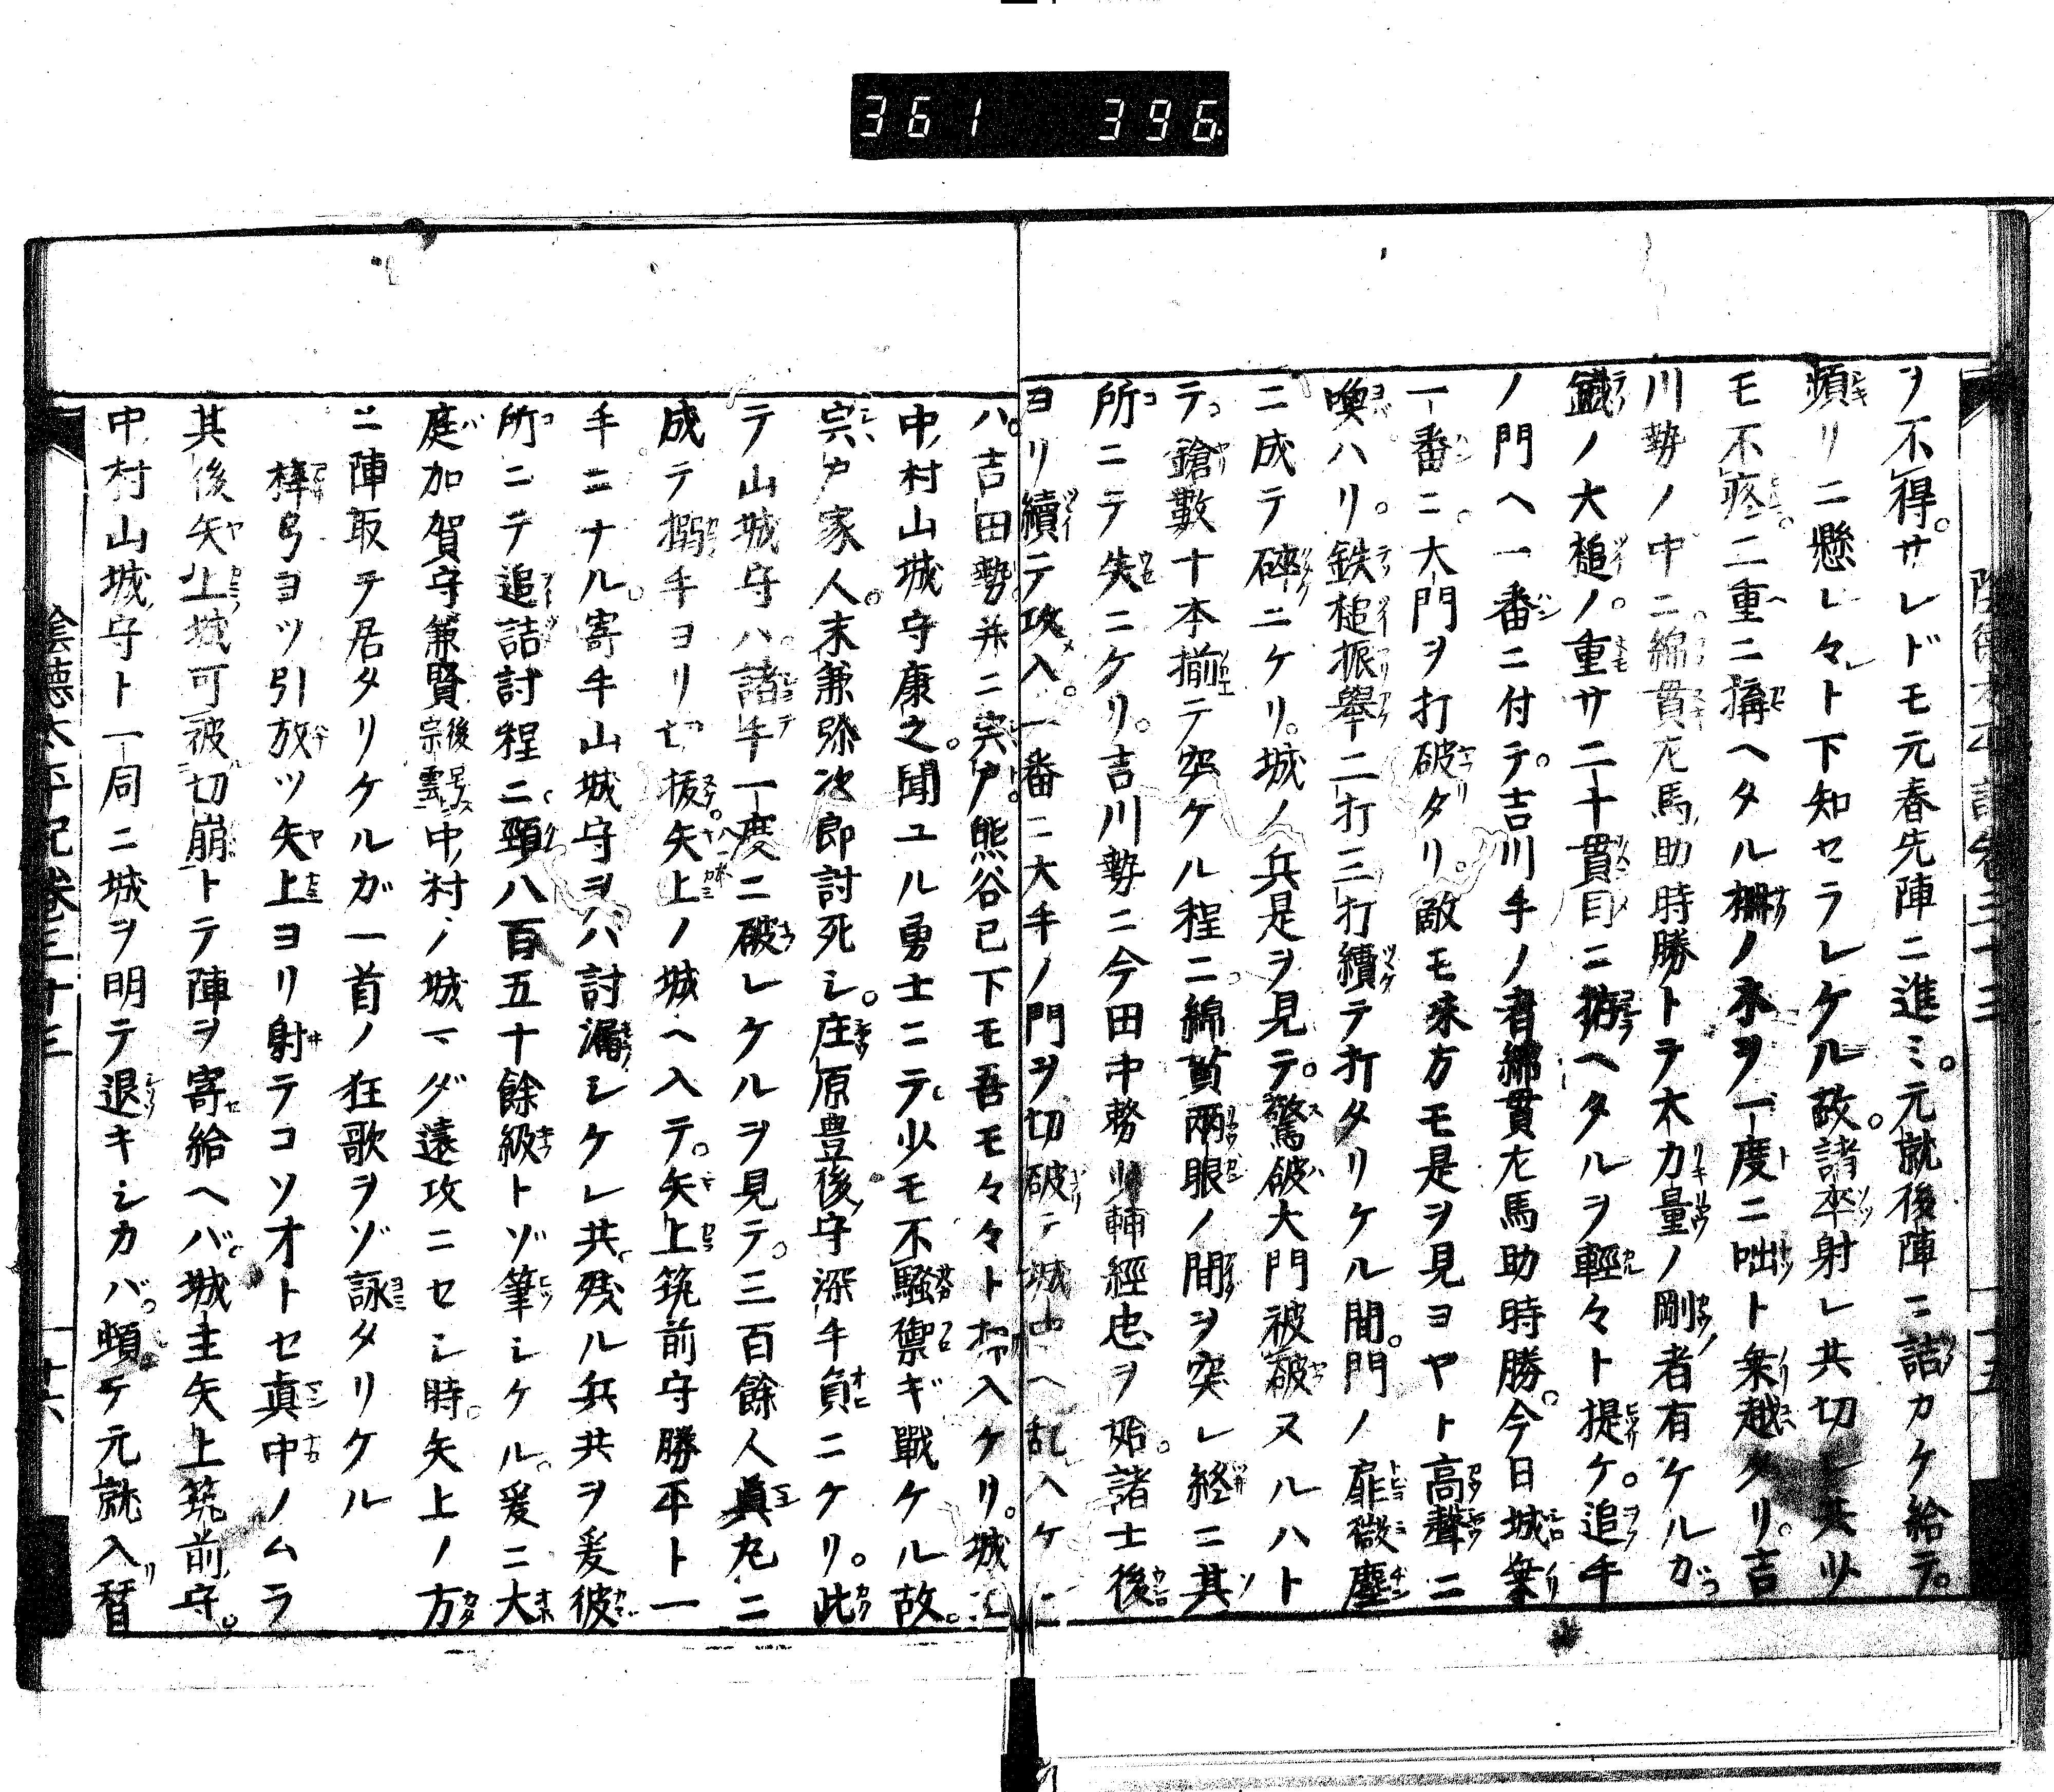 361 396
ヲ不得。サレドモ元春先陣ニ進ミ。元就後陣ニ詰カケ給テ。
頻リニ懸レ々ト下知セラレケル故。諸卒射レ共切レ共少
モ不疼。二重ニ搆ヘタル柵ノ木ヲ一度ニ咄ト乗越タリ。吉
川勢ノ中ニ。綿貫左馬助時勝トテ大力量ノ剛者有ケルガ
鐵ノ大槌ノ。重サ二十貫目ニ拵ヘタルヲ輕々ト提ケ。追手
ノ門ヘ一番ニ付テ。吉川手ノ者綿貫左馬助時勝。今日城乗
一番ニ。大門ヲ打破タリ。敵モ味方モ是ヲ見ヨヤト高聲ニ
喚ハリ。鉄槌振舉二打三打續テ打タリケル間。門ノ扉微塵
ニ成テ碎ニケリ。城ノ兵是ヲ見テ。驚破大門被破ヌルハト
テ。鎗數十本揃テ突ケル程ニ。綿貫兩眼ノ間ヲ突レ終ニ其
所ニテ失ニケリ。吉川勢ニ今田中務少輔經忠ヲ始。諸士後
ヨリ續テ攻入。一番ニ大手ノ門ヲ切破テ城中ヘ乱入ケレ
ハ。吉田勢并ニ宍戸。熊谷已下モ吾モ々々ト攻入ケリ。城
中村山城守康之。聞ユル勇士ニテ。少モ不騒禦ギ戰ケル故。
宍戸家人。末兼弥次郎討死シ。庄原豊後守深手負ニケリ。此
テ山城守ハ。諸手一度ニ破レケルヲ見テ。三百餘人真丸ニ
成テ搦手ヨリ切抜。矢上ノ城ヘ入テ。矢上筑前守勝平ト一
手ニナル。寄手山城守ヲハ討漏シケレ共。残ル兵共ヲ爰彼
所ニテ追詰討程ニ。頸八百五十餘級トゾ筆シケル。爰ニ大
庭加賀守兼賢後号ス宗雲ト中村ノ城マダ遠攻ニセシ時。矢上ノ方
ニ陣取テ居タリケルガ一首ノ狂歌ヲゾ詠タリケル
梓弓ヨツ引放ツ矢上ヨリ射テコソオトセ真中ノムラ
其後矢上城可被切崩トテ陣ヲ寄給ヘバ。城主矢上筑前守。
中村山城守ト一同ニ城ヲ明テ退キシカバ。頓テ元就入替
陰徳太平記巻三十三 十六